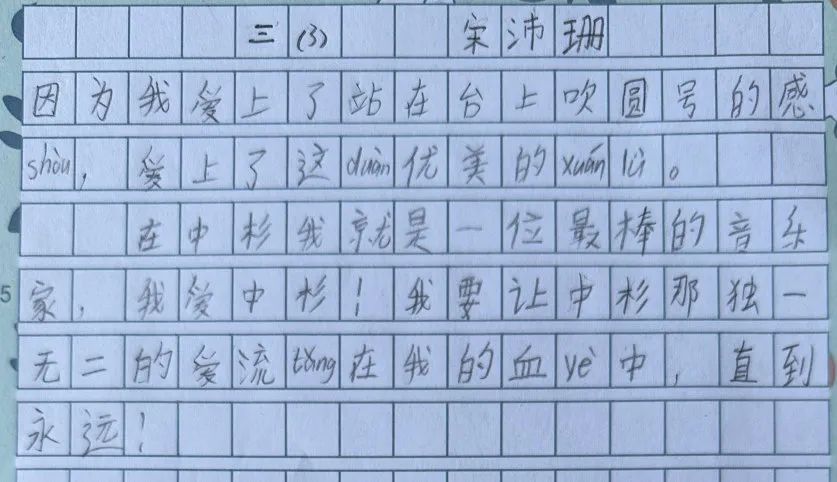 三(3) 宋沛珊
因为我爱上了站在台上吹圆号的感
shòu，爱上了这duàn优美的xuán lǜ。
在中杉我就是一位最棒的音乐
家，我爱中杉！我要让中杉那独一
5
无二的爱流tǎng在我的血yè中，直到
永远！